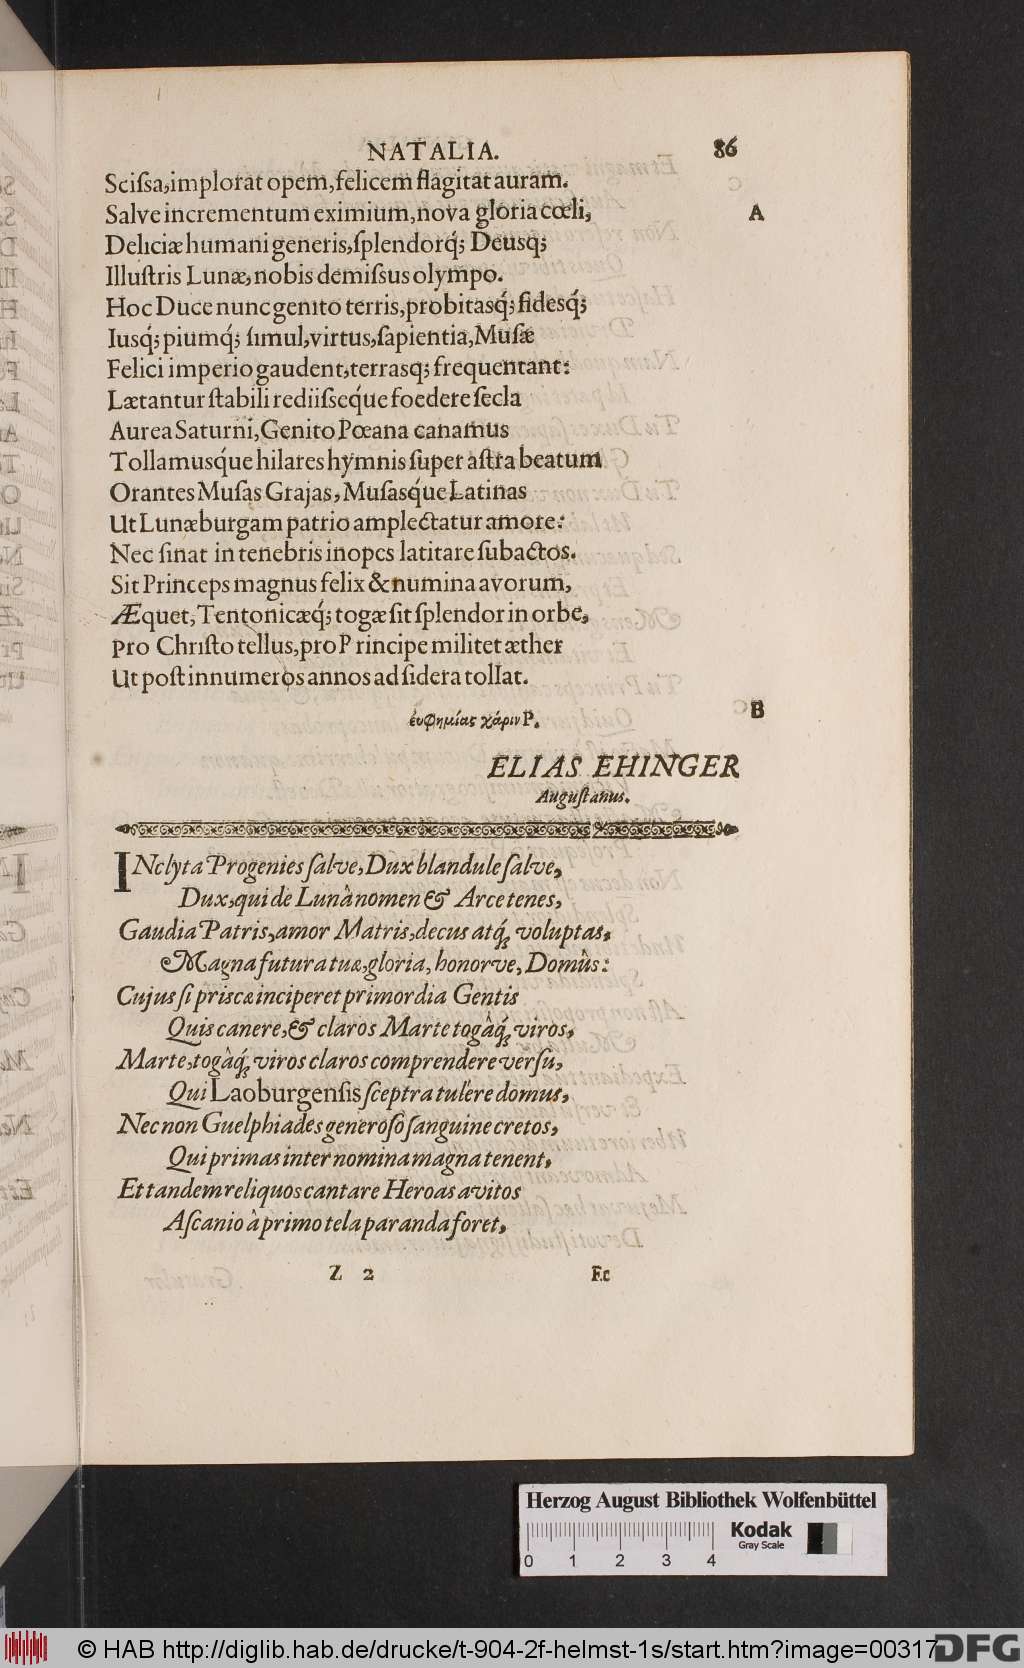 NATALIA. 86
Scissa, implorat opem, felicem flagitat auram.
Salve incrementum eximium, nova gloria cœli, A
Deliciæ humani generis, splendorq́; Deusq;
Illustris Lunæ, nobis demissus olympo.
Hoc Duce nunc genito terris, probitasq́; fidesq́;
Iusq́; piumq́; simul, virtus, sapientia, Musæ
Felici imperio gaudent, terrasq; frequentant:
Lætantur stabili rediisseq́ue foedere secla
Aurea Saturni, Genito Pœana canamus
Tollamusq́ue hilares hymnis super astra beatum
Orantes Musas Grajas, Musasq́ue Latinas
Ut Lunæburgam patrio amplectatur amore:
Nec sinat in tenebris inopes latitare subactos.
Sit Princeps magnus felix & numina avorum,
Æquet, Tentonicæq́; togæ sit splendor in orbe,
Pro Christo tellus, pro Principe militet æther
Ut post innumeros annos ad sidera tollat.
ἐυφημίας χάριν P. B
ELIAS EHINGER
Augustanus.
INclyta Progenies salve, Dux blandule salve,
Dux, qui dè Lunâ nomen & Arce tenes,
Gaudia Patris, amor Matris, decus atq́; voluptas,
Magna futura tuæ, gloria, honorve, Domûs:
Cujus si prisca inciperet primordia Gentis
Quis canere, & claros Marte togâq́; viros,
Marte, togâq́; viros claros comprendere versu,
Qui Laoburgensis sceptra tulere domus,
Nec non Guelphiades generoso sanguine cretos,
Qui primas inter nomina magna tenent,
Et tandem reliquos cantare Heroas avitos
Ascanio à primo tela paranda foret,
Z 2 Ec
Herzog August Bibliothek Wolfenbüttel
Kodak
Gray Scale
0 1 2 3 4
© HAB http://diglib.hab.de/drucke/t-904-2f-helmst-1s/start.htm?image=00317
DFG